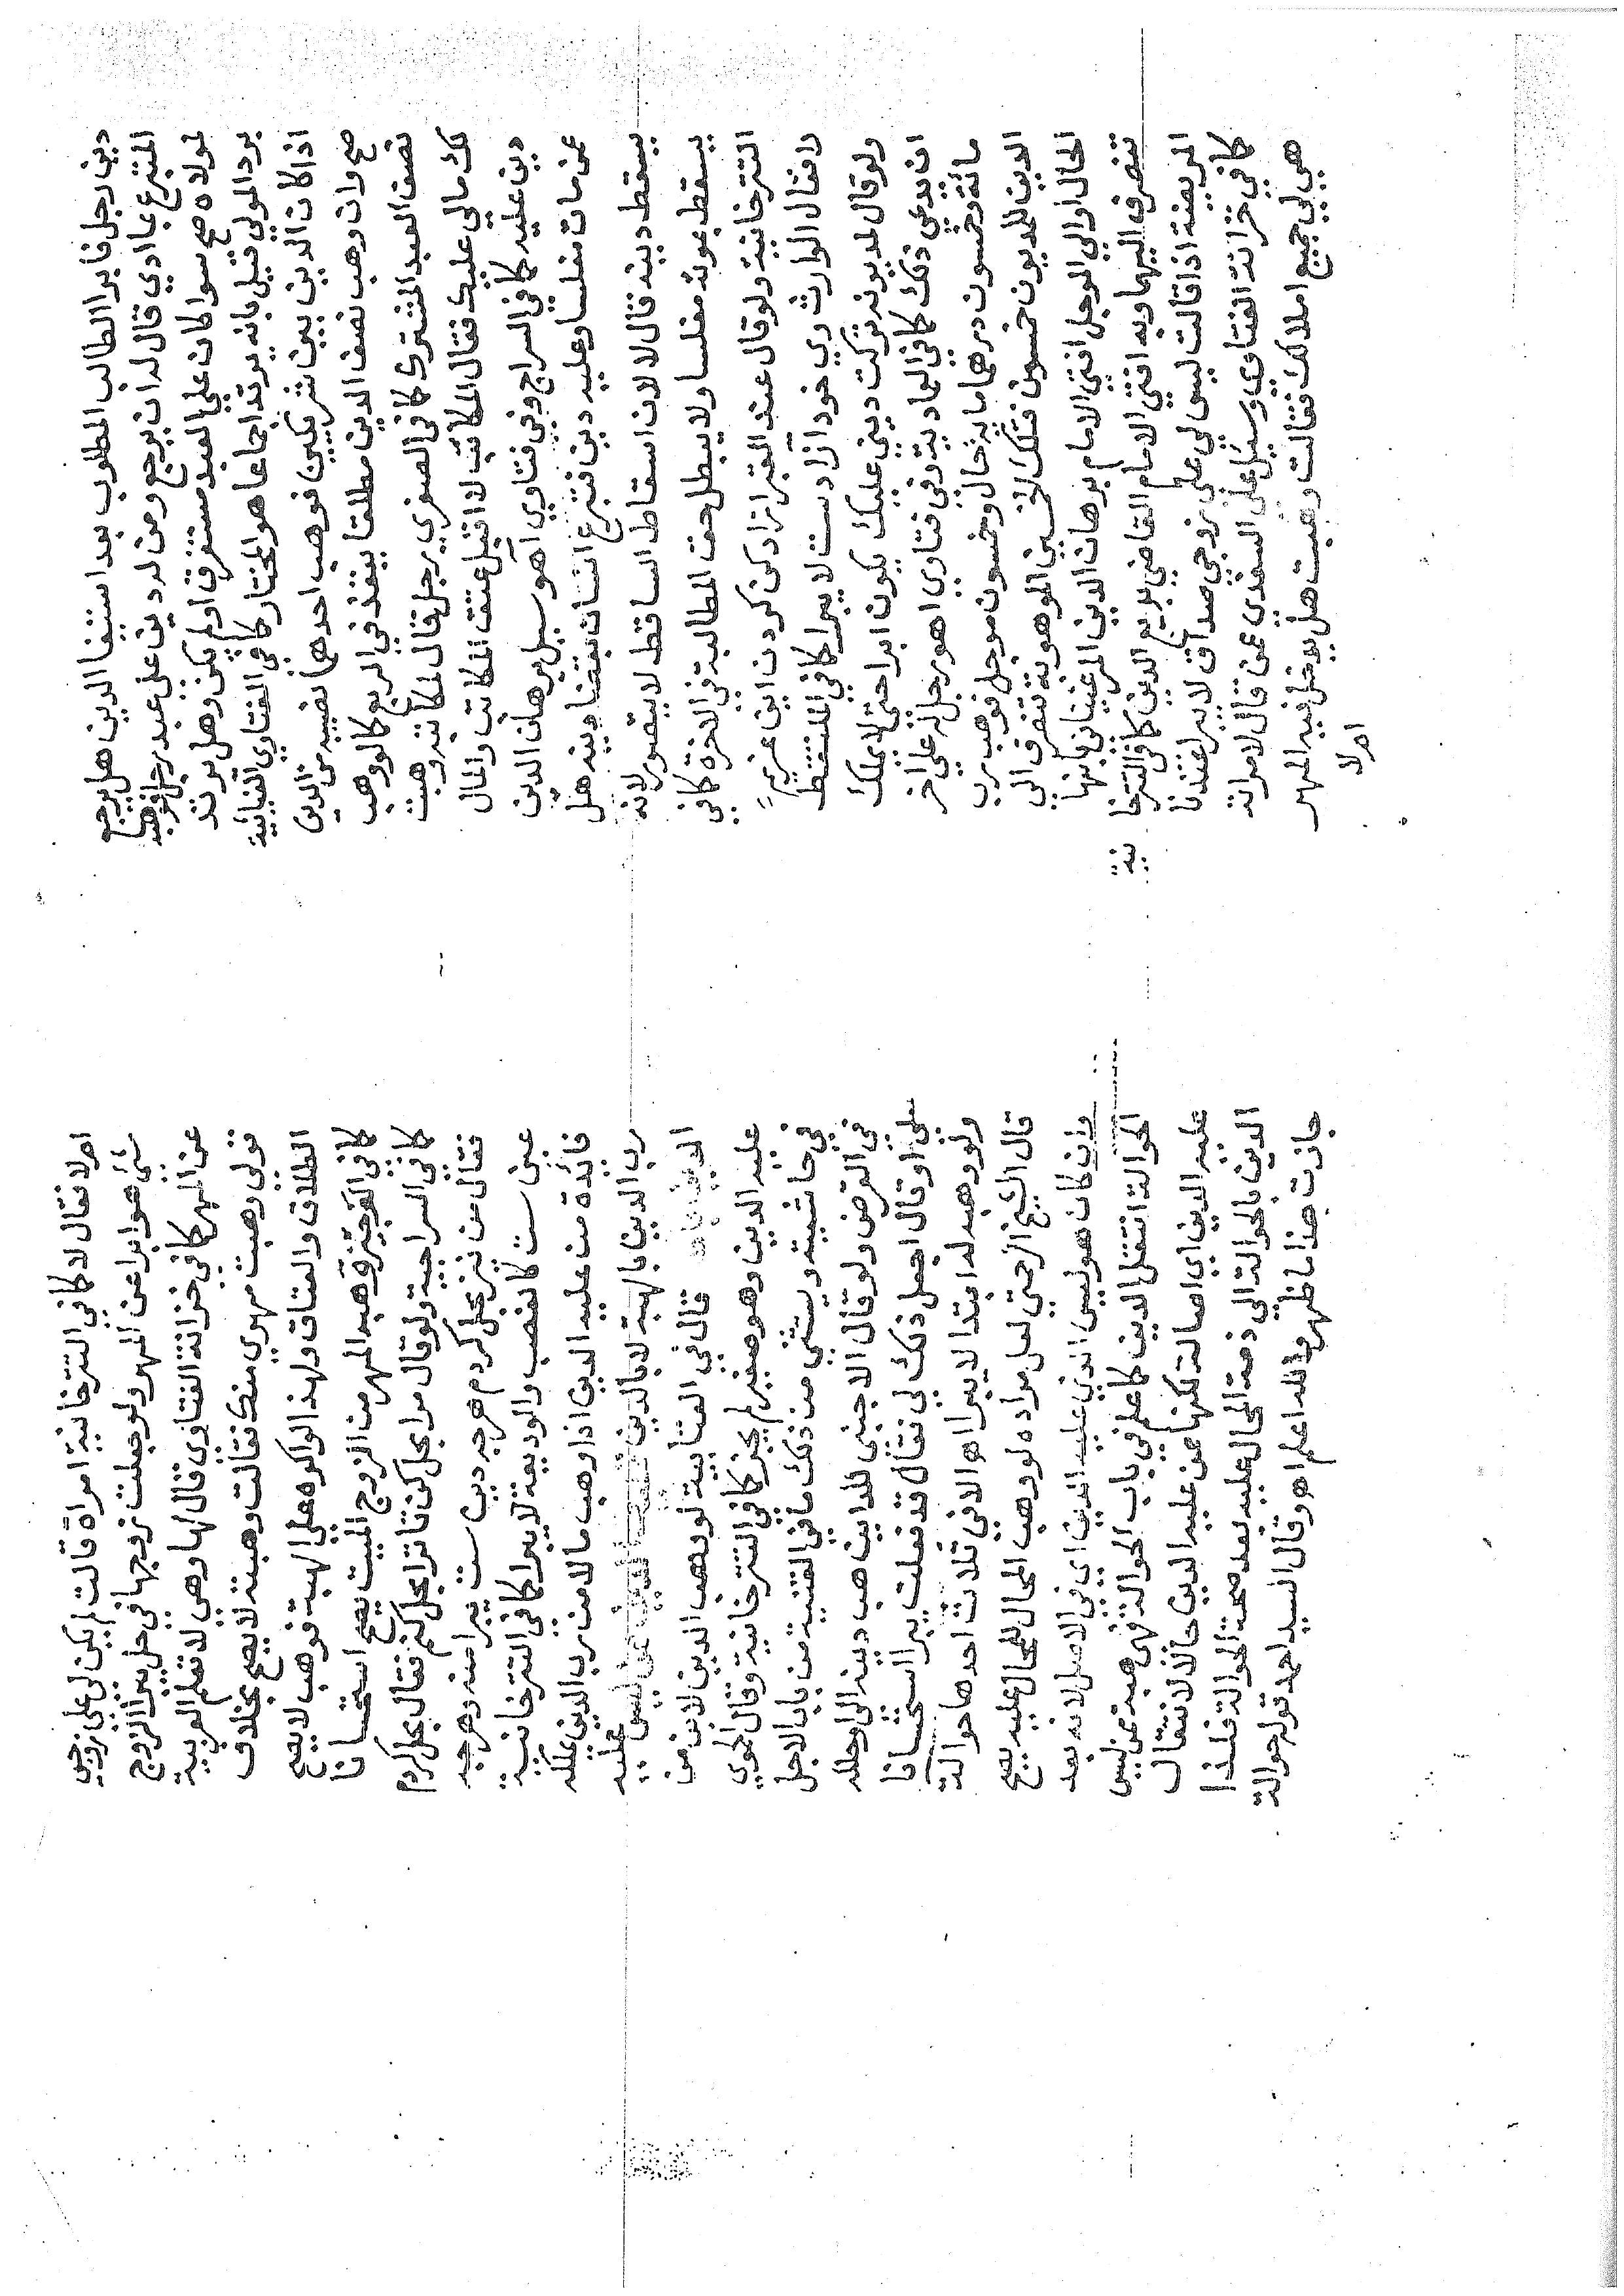 دين رجل فابرا الطالب المطلوب بعد استيفا الدين هل يرجع
المتبرع بما ادي قال له ان يرجع ومن له دين علي عبد رجل فوهبه
لمولاه صح سوا كان علي العبد مستغرق اولم يكن وهل يرتد
برد المولي قيل بانه يرتد اجماعا هو المختار كافي الفتاوي الغياثية
اذا كان الدين بين شريكين فوهب احدهما نصيبه من الدين
صح وان وهب نصف الدين مطلقا ينفذ في الربع كالووهب
نصف العبد المشترك كافي الصغري رجل قال لمكاتبه وهبت
لك مالي عليك فقال المكاتب لا اقبل عتق المكاتب والمال
دين عليه كافي السراج وفي فتاوي آهو سيل برهان الدين
عن مات مفلسا وعليه دين فتبرع انسان بقضا دينه هل
يسقط دينه قال لا لان اسقاط الساقط لا يتصور لانه
يسقط بموته مفلسا ولا يبطل حق المطالبة في الاخرة كافي
التترخانية ولو قال عند القبر ازاد كن كردن اين غريم
را فقال الوارث وي خود آزادست لا يبرا كافي الملتقط
ولو قال لمديونه تركت ديني عليك يكون ابرا حتي لا يملك
ان يدعي ذلك كافي العمادية وفي فتاوي اهو رجل له علي اخر
مائة وخمسون درهما مايه حال وخمسون موجل فوهب رب
الدين للمديون خمسون فتلك الخمسين الموهوبة تنصرف الي
الحال اوالي الموجل افتي الامام برهان الدين المرغيناني بانها
تنصرف اليهما وبه افتي الامام القاضي بديع الدين كافي الترخا
نية
المريضة اذا قالت ليس لي علي زوجي صداق لا يبرا عندنا
كافي خزانة الفتاوي وسيل علي السغدي عن قال لامراته
هبي لي جميع املاكك فقالت وهبت هل يدخل فيه المهر
امرلا
امرلا فقال لا كافي التترخانية امراة قالت لم يكن لي علي زوجي
شئ هوا برا عن المهر ولو جعلت زوجها في حل يبرا الزوج
عن المهر كافي خزانة الفتاوي قال لها وهي لا تعلم العربية
قولي وهبت مهري منك فقالت وهبته لا يصح بخلاف
الطلاق والعتاق ولهذا لواكره علي الهبة فوهب لا يصح
كافي الوجيز وهبة المهر من الزوج الميت تصح استحسانا
كافي السراجية ولو قال مرا بحل كن تا ترا بحل كنم فقال بحل كردم
فقال من نيز بحل كردم هرچه ديب ست يبرا منه وهرچه
عين ست كالغصب والوديعة لا يبرا كافي التترخانية
فائدة من عليه الدين اذا وهب مالا من رب الدين يملكه
رب الدين بالهبة لا بالدين عليه
قال في العتابية لووهب الدين لابن من
عليه الدين وهو صغير لم يجز كافي التترخانية وقال الحموي
في حاشيته ويستثني من ذلك مافي القنية من باب الاجل
في القرض ولو قال الاجنبي للداين هب دينه لي اوحلله
لي اوقال اجعل ذلك لي فقال قد فعلت يبرا استحسانا
ولو وهبه له ابتدا لا يبرا اه والا في ثلاث احدها حوالة
قال الشيخ الرحمتي لعل مراده لو وهب المحال للمحال عليه يصح
وان كان هوليس الذي عليه الدين اي في الاصل لانه بعد
الحوالة انتقل الدين كا علم في باب الحوالة فهي هبة ممن ليس
عليه الدين اي اصالة لكنها ممن عليه الدين حالا لانتقال
الدين بالحوالة الي ذمة المحال عليه بعد صحة الحوالة فلذا
جازت هذا ما ظهر والله اعلم اه وقال السيد احمد قوله حوالة